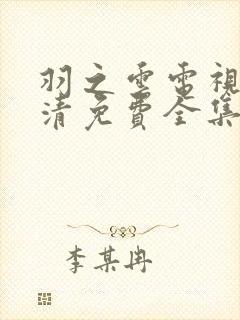 羽之雲電視
清免費全集
李某冉